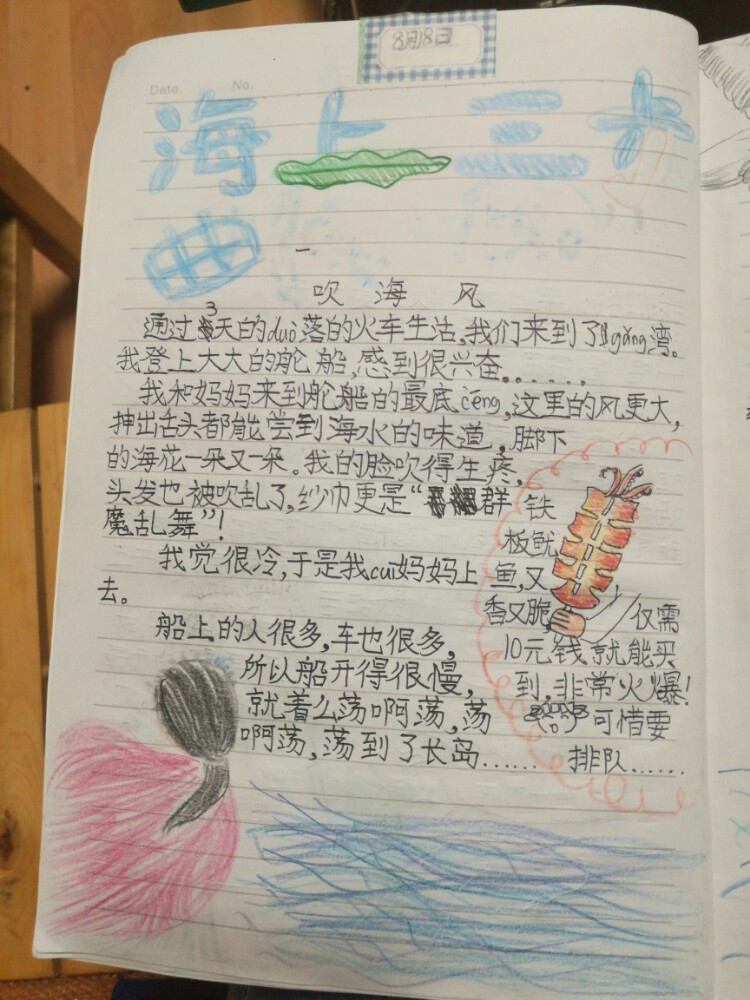 Date. No.
8月18日
海上三
曲
一
吹 海 风
通过3天的duò落的火车生活,我们来到了gǎng湾。
我登上大大的舵船,感到很兴奋......
我和妈妈来到舵船的最底céng,这里的风更大,
抻出舌头都能尝到海水的味道,脚下
的海花一朵又一朵。我的脸吹得生疼,
头发也被吹乱了,纱巾更是“群
魔乱舞”!
我觉很冷,于是我cuī妈妈上
去。
船上的人很多,车也很多,
所以船开得很慢,
就着么荡啊荡,荡
啊荡,荡到了长岛......
铁
板鱿
鱼,又
香又脆,仅需
10元钱就能买
到,非常火爆!
可惜要
排队......